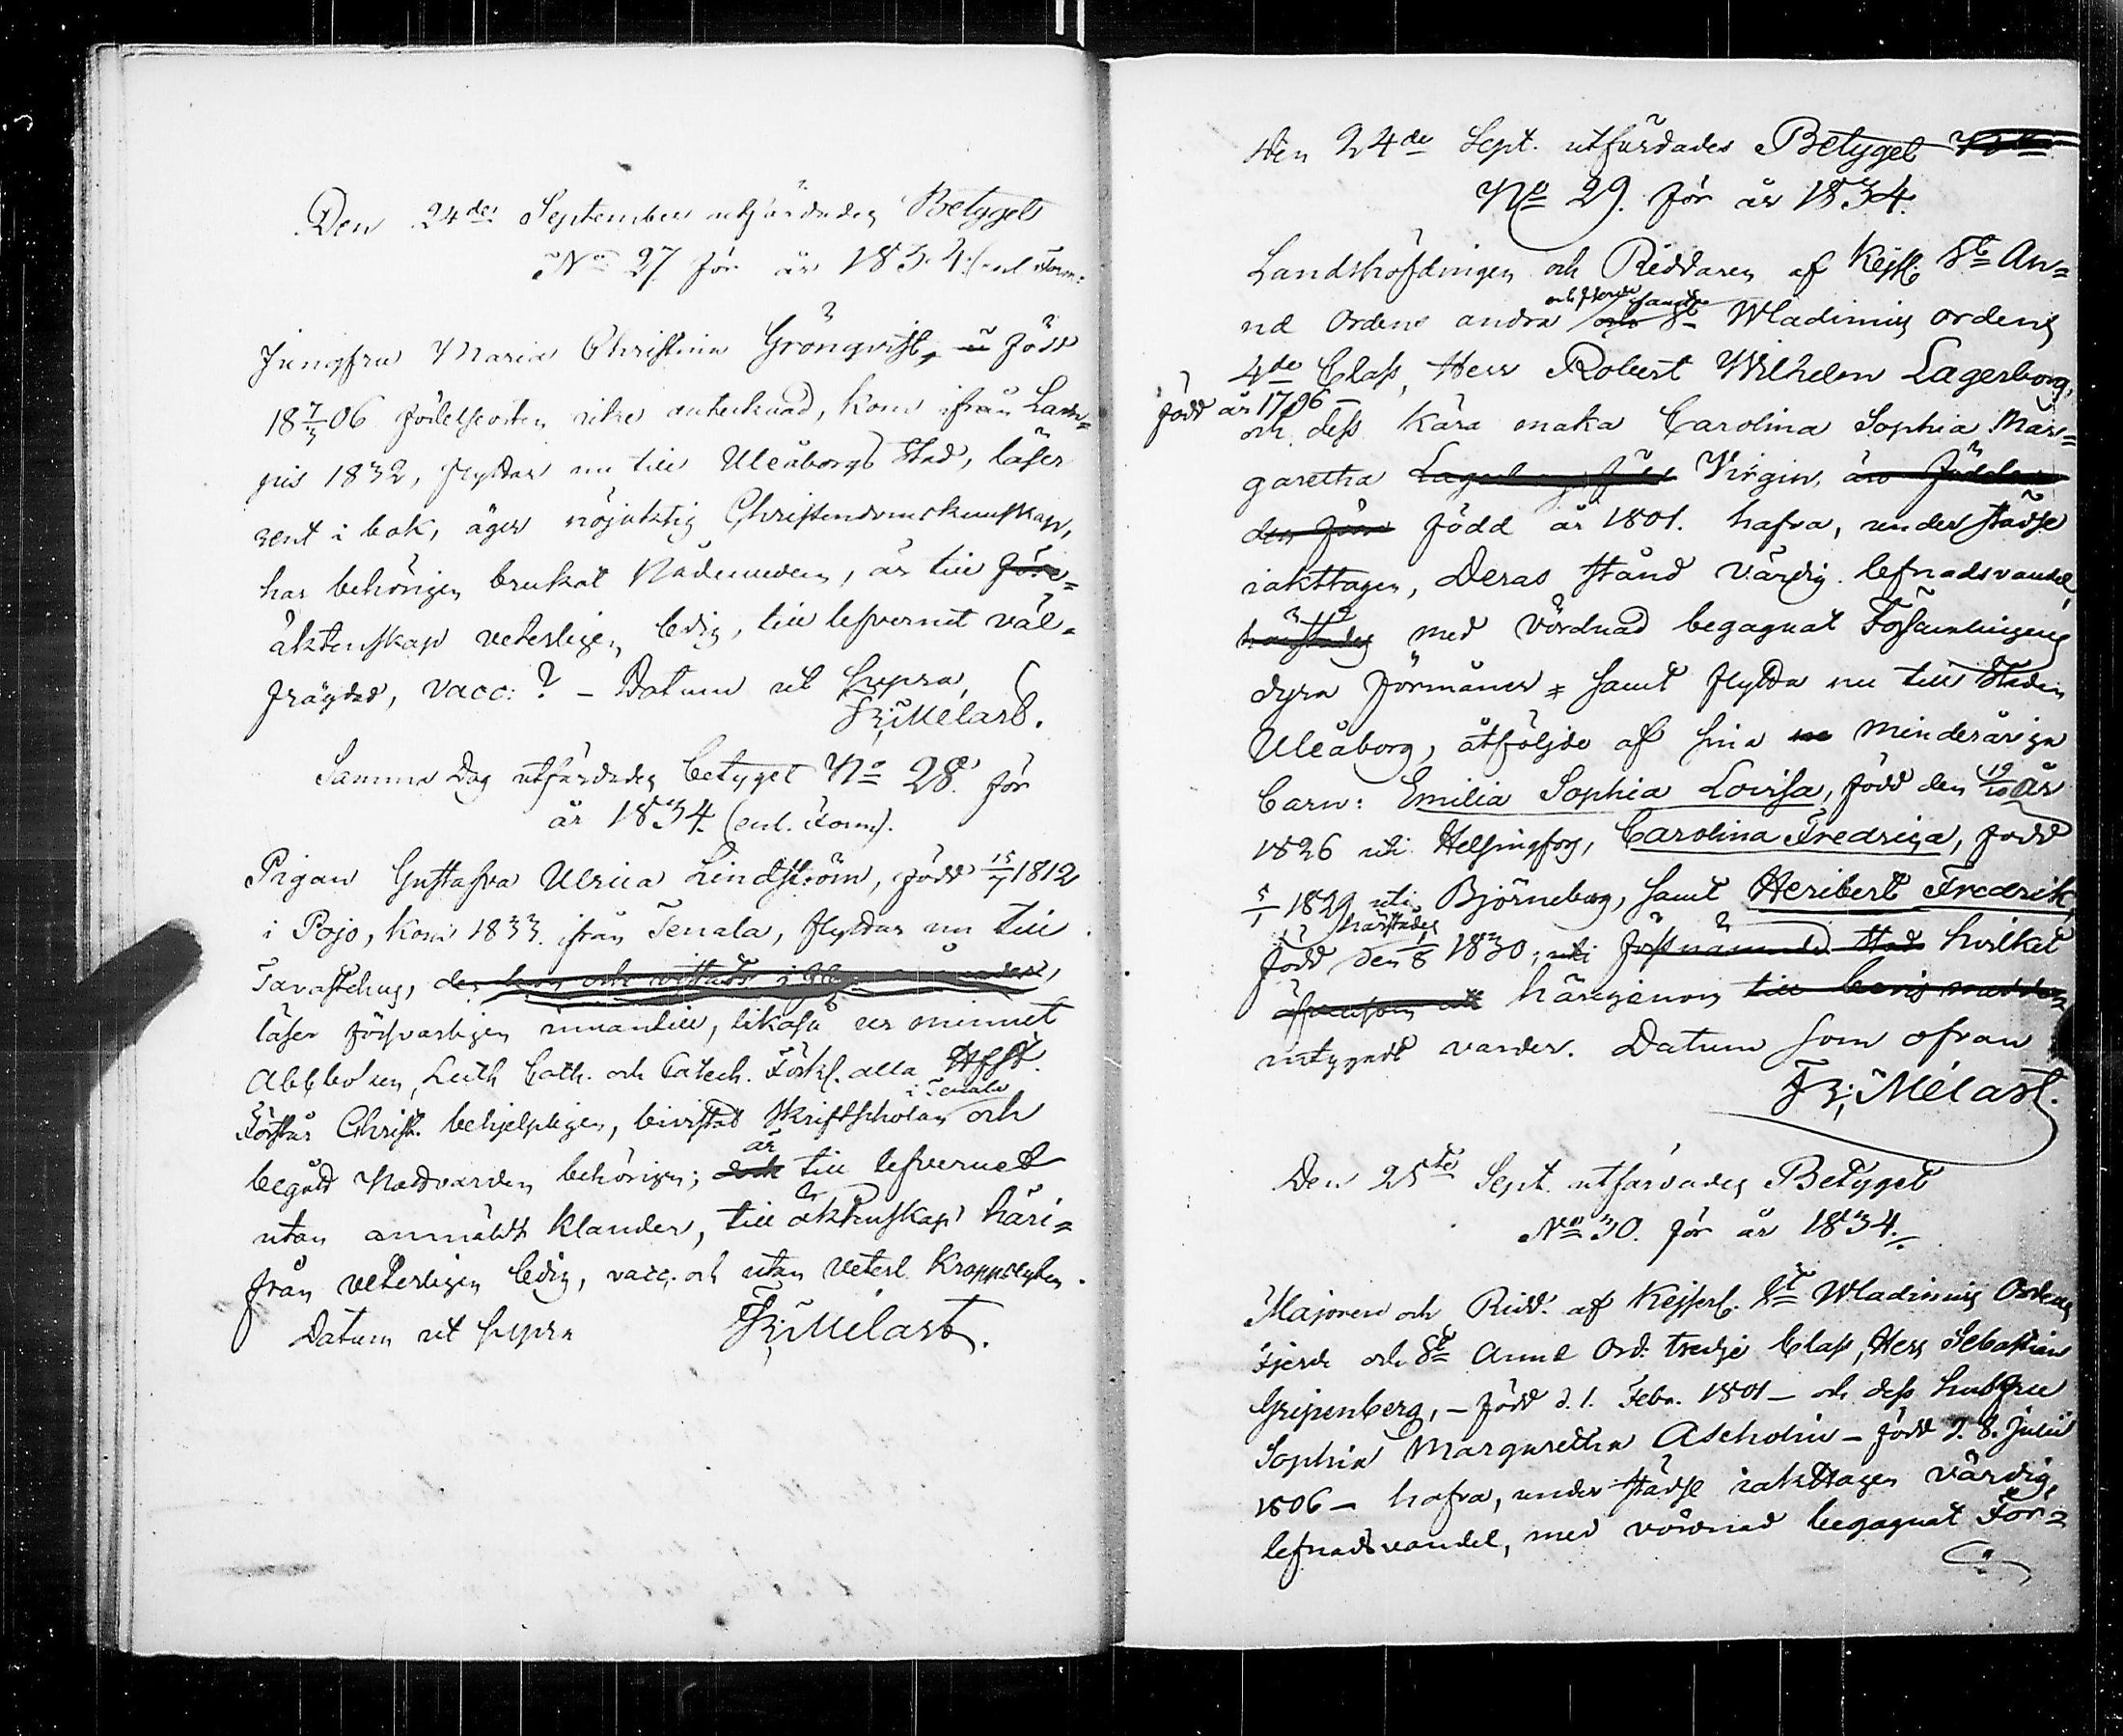 Den 24de September utfärdades Betyget
No 27 för år 1834 (enl Form.
Jungfru Maria Christina Grönqvist, född
18 7/3 06 födelseorten icke antecknad, kom ifrån Lam=
pis 1832, flyttar nu till Uleåborgs Stad, läser
rent i bok, äger nöjaktig Christendomskunskap,
har behörigen brukat Nådemedlen, är till före=
äktenskap veterligen ledig, till lefvernet väl=
frägdad, vacc: ? – Datum ut supra,
Fr: Melart.
Samma Dag utfärdades betyget No 28. för
år 1834. (enl. Form).
Pigan Gustafva Ulrica Lindström, född 15/7 1812
i Pojo, kom 1833. ifrån Tenala, flyttar nu till
Tavastehus,
läser försvarligen innantill, likaså ur minnet
Abcboken, Luth Cath. och Catech. Förkl. alla
Förstår Christ. behjelpligen, bivistat Skriftscholan i Tenala och
begått Nattvarden behörigen; är till lefvernet
utan anmäldt klander, till äktenskap häri=
från veterligen ledig, vacc. och utan veterl. kroppslyten.
Datum ut supra Fr: Melart.
Den 24de Sept. utfärdades Betyget
No 29. för år 1834.
Landshöfdingen och Riddaren af Kejserl. St An=
næ Ordens andra och Sanct Wladimirs ordens
4de Class, Herr Robert Wilhelm Lagerborg,
född år 1796 –
och dess kära maka Carolina Sophia Mar=
garetha Virgin,
född år 1801. hafva, under städse
iakttagen, Deras stånd värdig lefnadsvandel,
med vördnad begagnat Församlingens
dyra förmåner samt flytta nu till Staden
Uleåborg, åtföljde af sina minderåriga
barn: Emilia Sophia Lovisa, född den 19/10 år
1826 uti Helsingfors, Carolina Fredrica, född
5/1 1829 uti Björneborg, samt Heribert Fredrik,
härstädes
född den 8 1830; uti förstnämnda Stad hvilket
härigenom till bevis
intygadt varder. Datum som ofvan
Fr: Melart.
Den 25te Sept. utfärdades Betyget
No 30. för år 1834.
Majoren och Ridd. af Kejserl. St Wladimirs Ordens
fjerde och St Annæ Ord. tredje Class, Herr Sebastian
Gripenberg, – född d. 1. Febr. 1801 – och dess hustru
Sophia Margaretha Ascholin – född d. 8. Julii
1806 – hafva, under städse iakttagen värdig,
lefnadsvandel, med vördnad begagnat För=